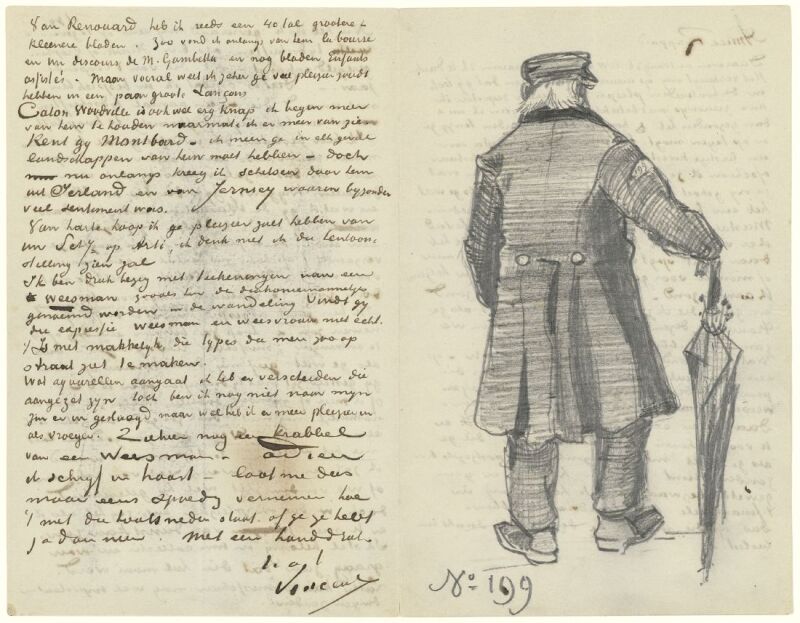 Van Renouard heb ik reeds een 40 tal grootere &
kleinere bladen. Zoo vond ik onlangs van hem la bourse
en un discours de M. Gambetta en nog bladen Enfants
assistés. Maar vooral weet ik zeker ge veel pleizier zoudt
hebben in een paar groote Lançons
Caton Woodville is ook wel erg knap ik begin meer
van hem te houden naarmate ik er meer van zie.
Kent gij Montbard – ik meen ge in elk geval
landschappen van hem moet hebben – doch
nu onlangs kreeg ik schetsen door hem
uit Ierland en van Jersey waarin bijzonder
veel sentiment was.
Van harte hoop ik ge pleizier zult hebben van
uw Schij op Arti, ik denk niet ik die tentoon-
stelling zien zal
Ik ben druk bezig met teekeningen van een
weesman zooals hier de diakoniemannetjes
genoemd worden in de wandeling Vindt gij
die expressie weesman en weesvrouw niet echt.
't Is niet makkelijk, die types die men zoo op
straat ziet te maken.
Wat aquarellen aangaat ik heb er verscheiden die
aangezet zijn toch ben ik nog niet naar mijn
zin er in geslaagd maar wel heb ik er meer pleizier in
als vroeger. Ziehier nog een krabbel
van een weesman – adieu
ik schrijf in haast – laat me dus
maar eens spoedig vernemen hoe
't met die houtsneden staat of ge ze hebt
ja dan neen. Met een handdruk
t. à t.
Vincent
No. 199